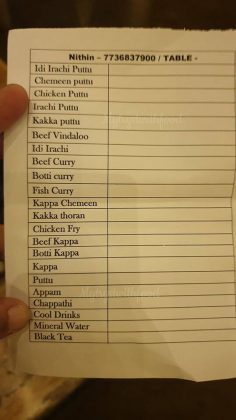 Nithin – 7736837900 / TABLE -
Idi Irachi Puttu
Chemeen puttu
Chicken Puttu
Irachi Puttu
Kakka puttu
Beef Vindaloo
Idi Irachi
Beef Curry
Botti curry
Fish Curry
Kappa Chemeen
Kakka thoran
Chicken Fry
Beef Kappa
Botti Kappa
Kappa
Puttu
Appam
Chappathi
Cool Drinks
Mineral Water
Black Tea